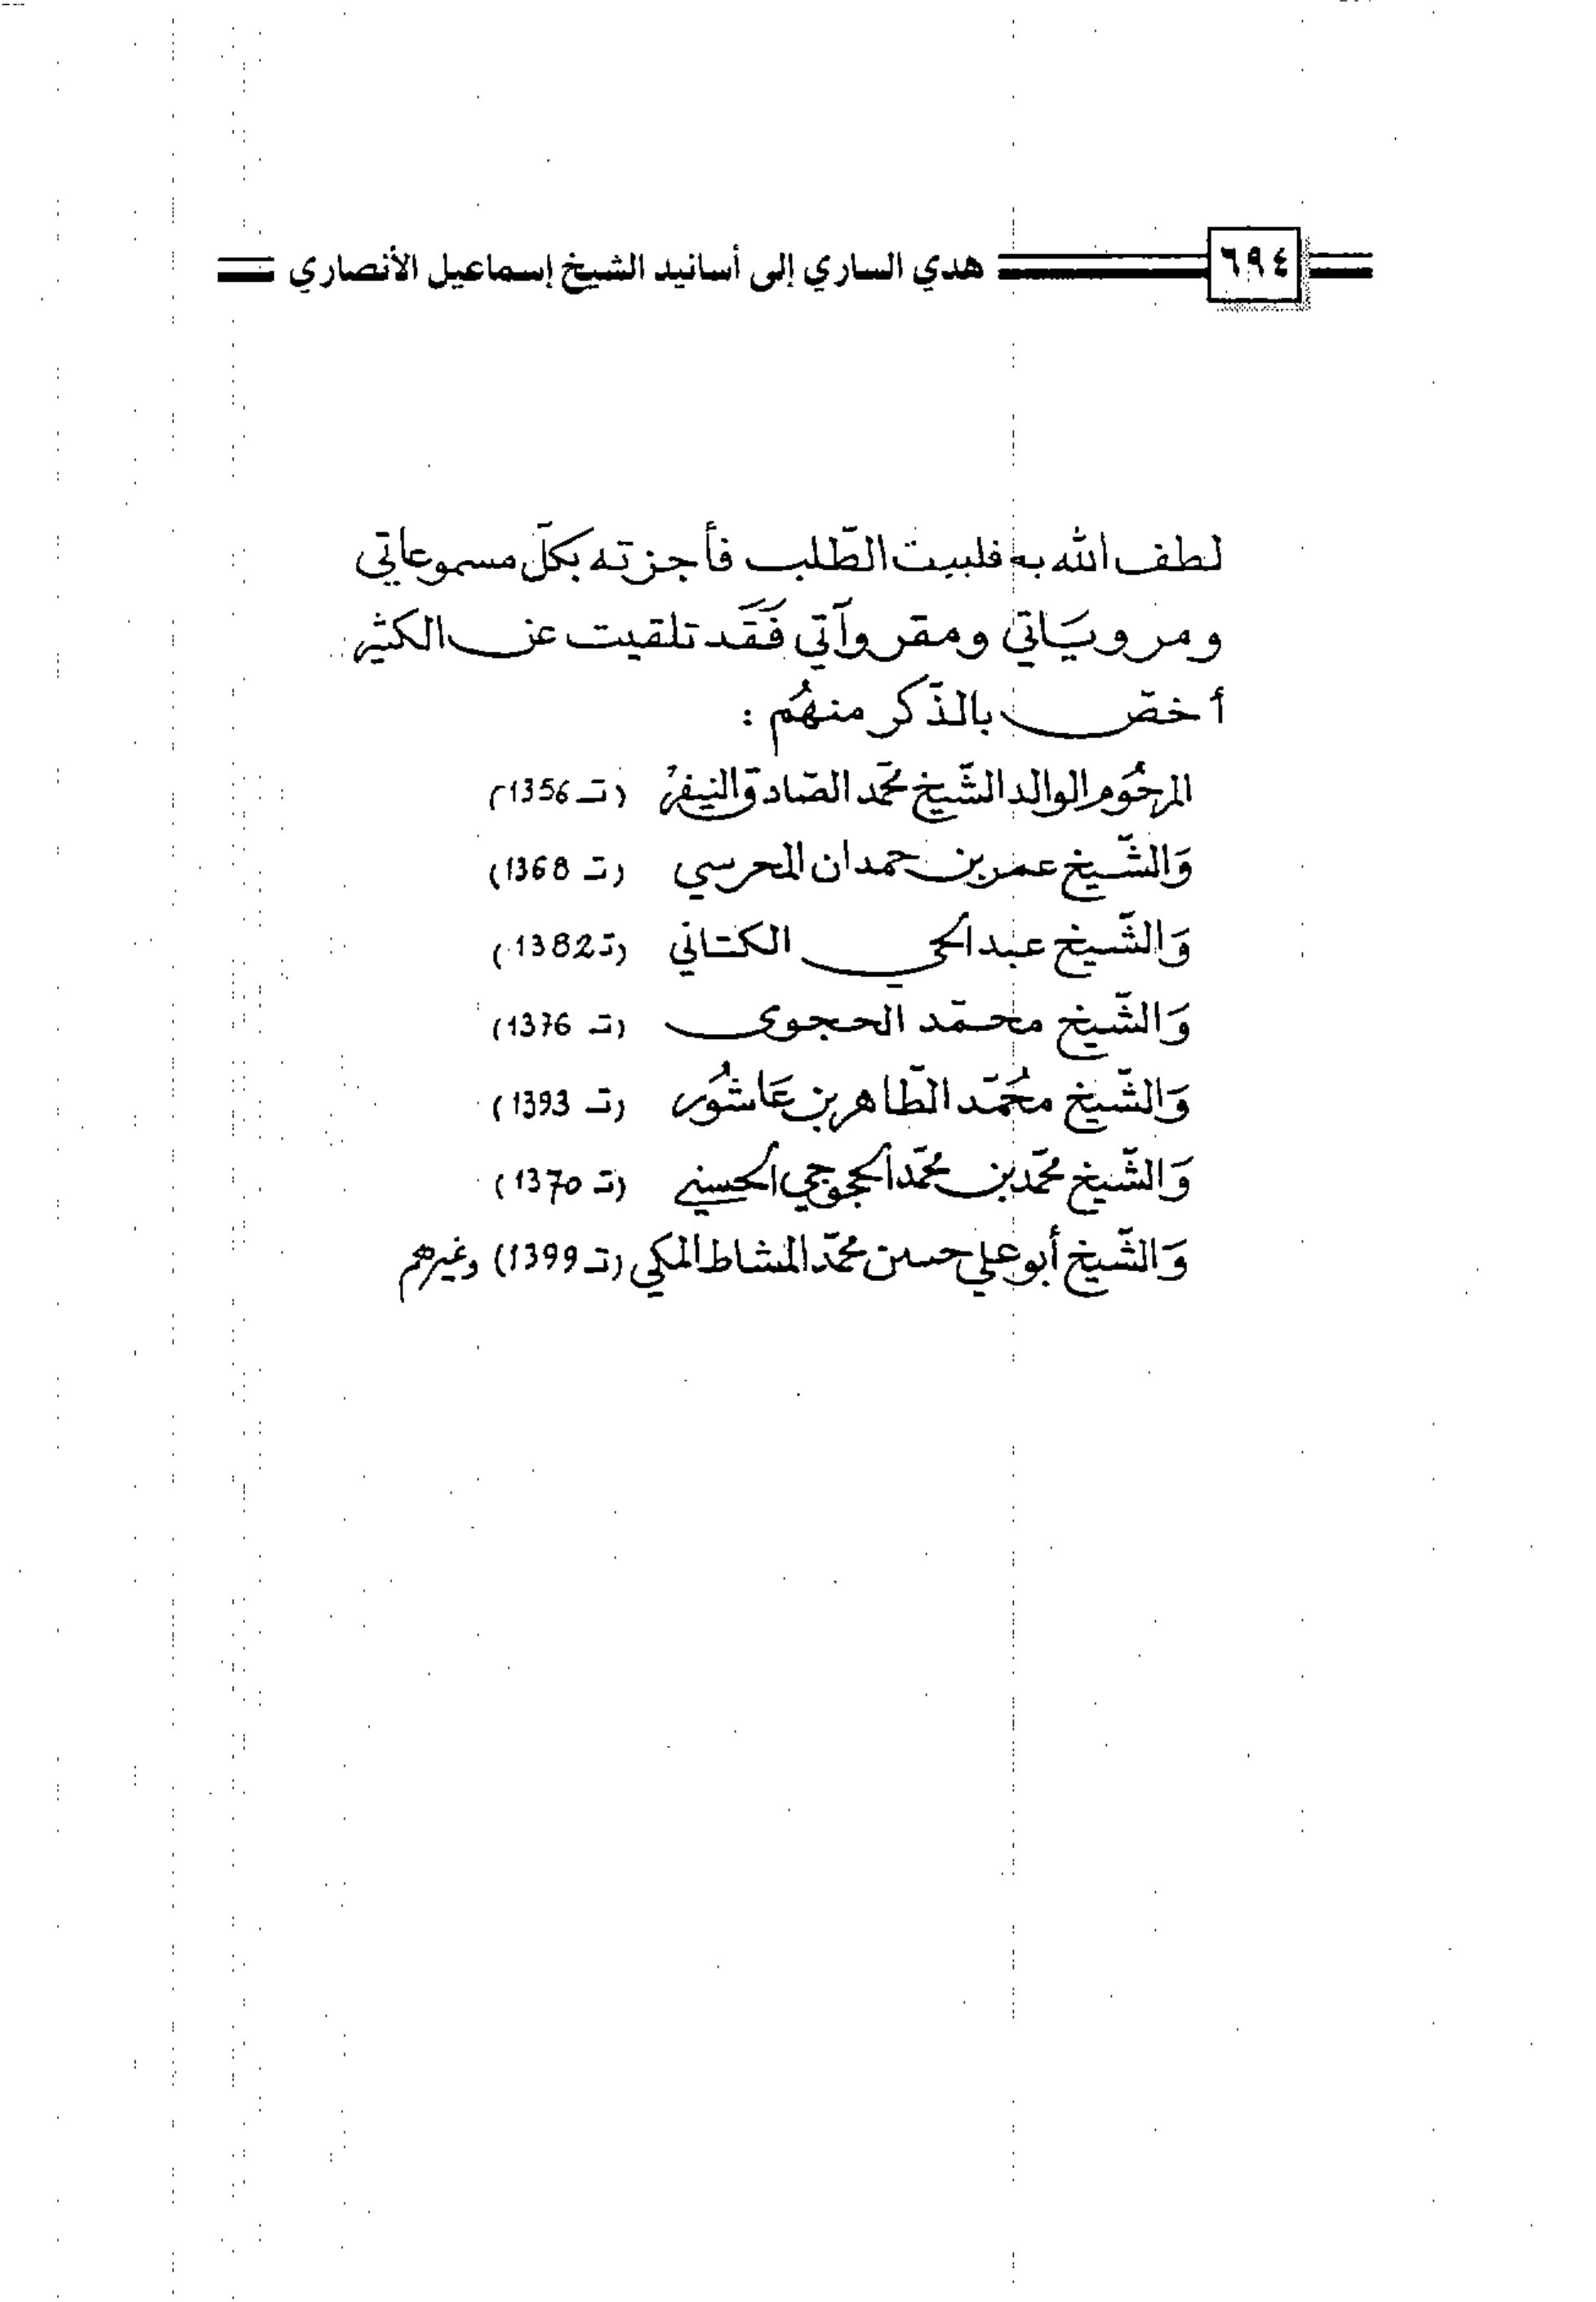 ٦٩٤ هدي الساري إلى أسانيد الشيخ إسماعيل الأنصاري
لطف الله به فلبيت الطّلب فأجزته بكلّ مسموعاتي
ومروياتي ومقروآتي فَقَد تلقيت عن الكثير
أخصّ بالذّكر منهُم :
المرحُوم الوالد الشّيخ محمّد الصّادق النيفر (تـ 1356)
وَالشّيخ عمر بن حمدان المحرسي (تـ 1368)
وَالشّيخ عبد الحي الكتاني (تـ 1382)
وَالشّيخ محمّد الحجوي (تـ 1376)
وَالشّيخ محُمّد الطّاهر بن عَاشُور (تـ 1393)
وَالشّيخ محمّد بن محمّد الحجوجي الحسني (تـ 1370)
وَالشّيخ أبو علي حسن محمّد المشاط المكي (تـ 1399) وغيرهم